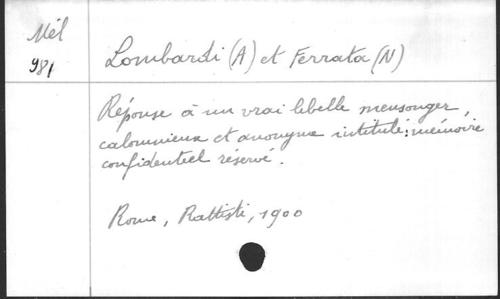 Mél
981
Lombardi (A) et Ferrata (N)
Réponse à un vrai libelle mensonger,
calomnieux et anonyme intitulé: mémoire
confidentiel réservé.
Rome, Rattisti, 1900